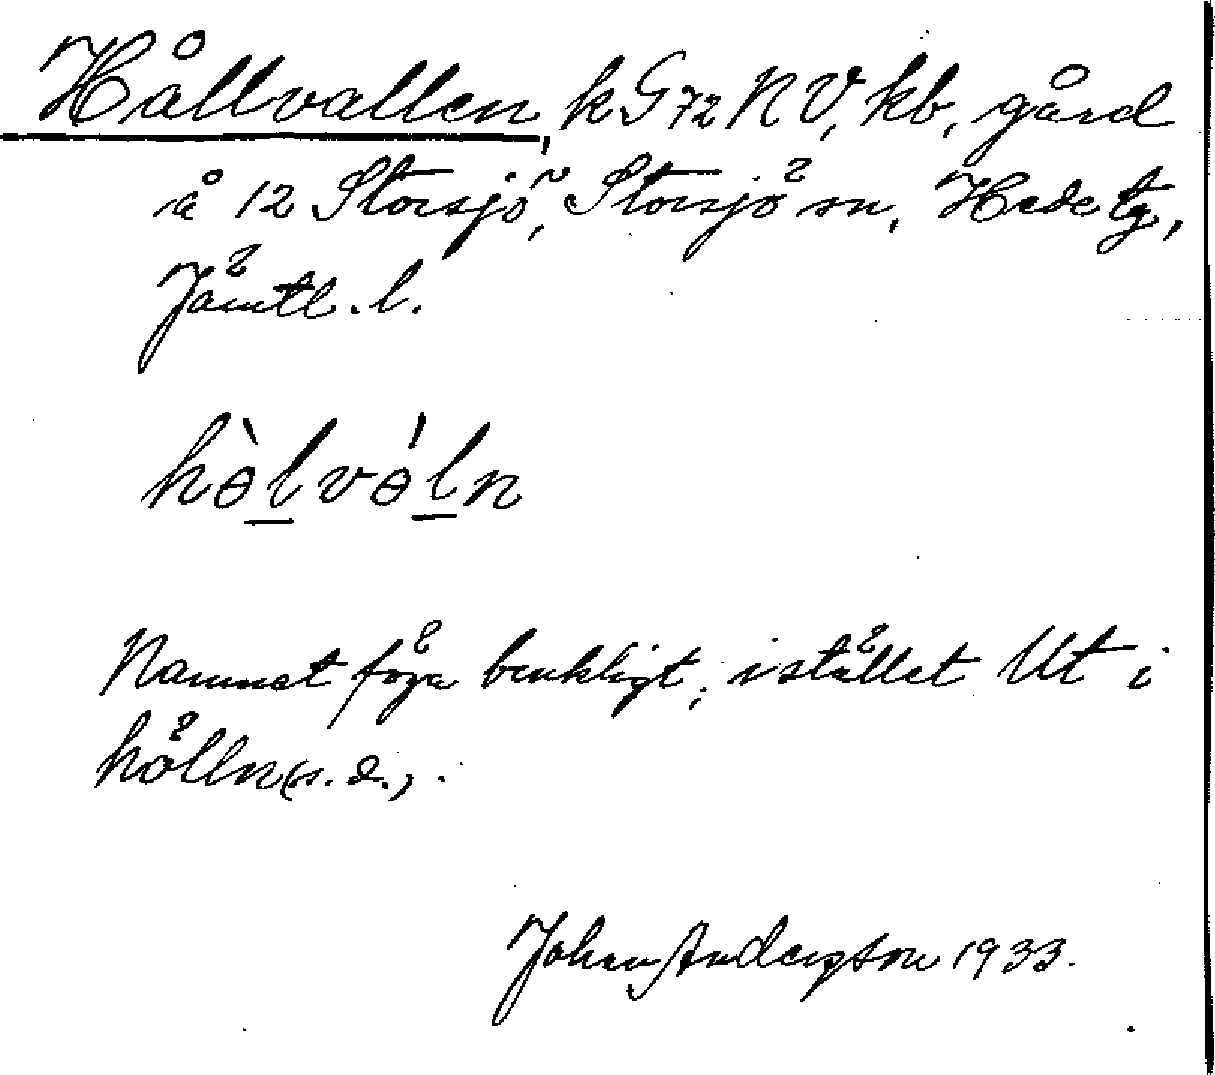 Hållvallen, k G72 NV, kb, gård
å 12 Storsjö, Storsjö sn, Hede tg,
Jämtl. l.
hòlvóln
Namnet föga brukligt, istället Ut i
hölln (s. d.).
Johan Andersson 1933.